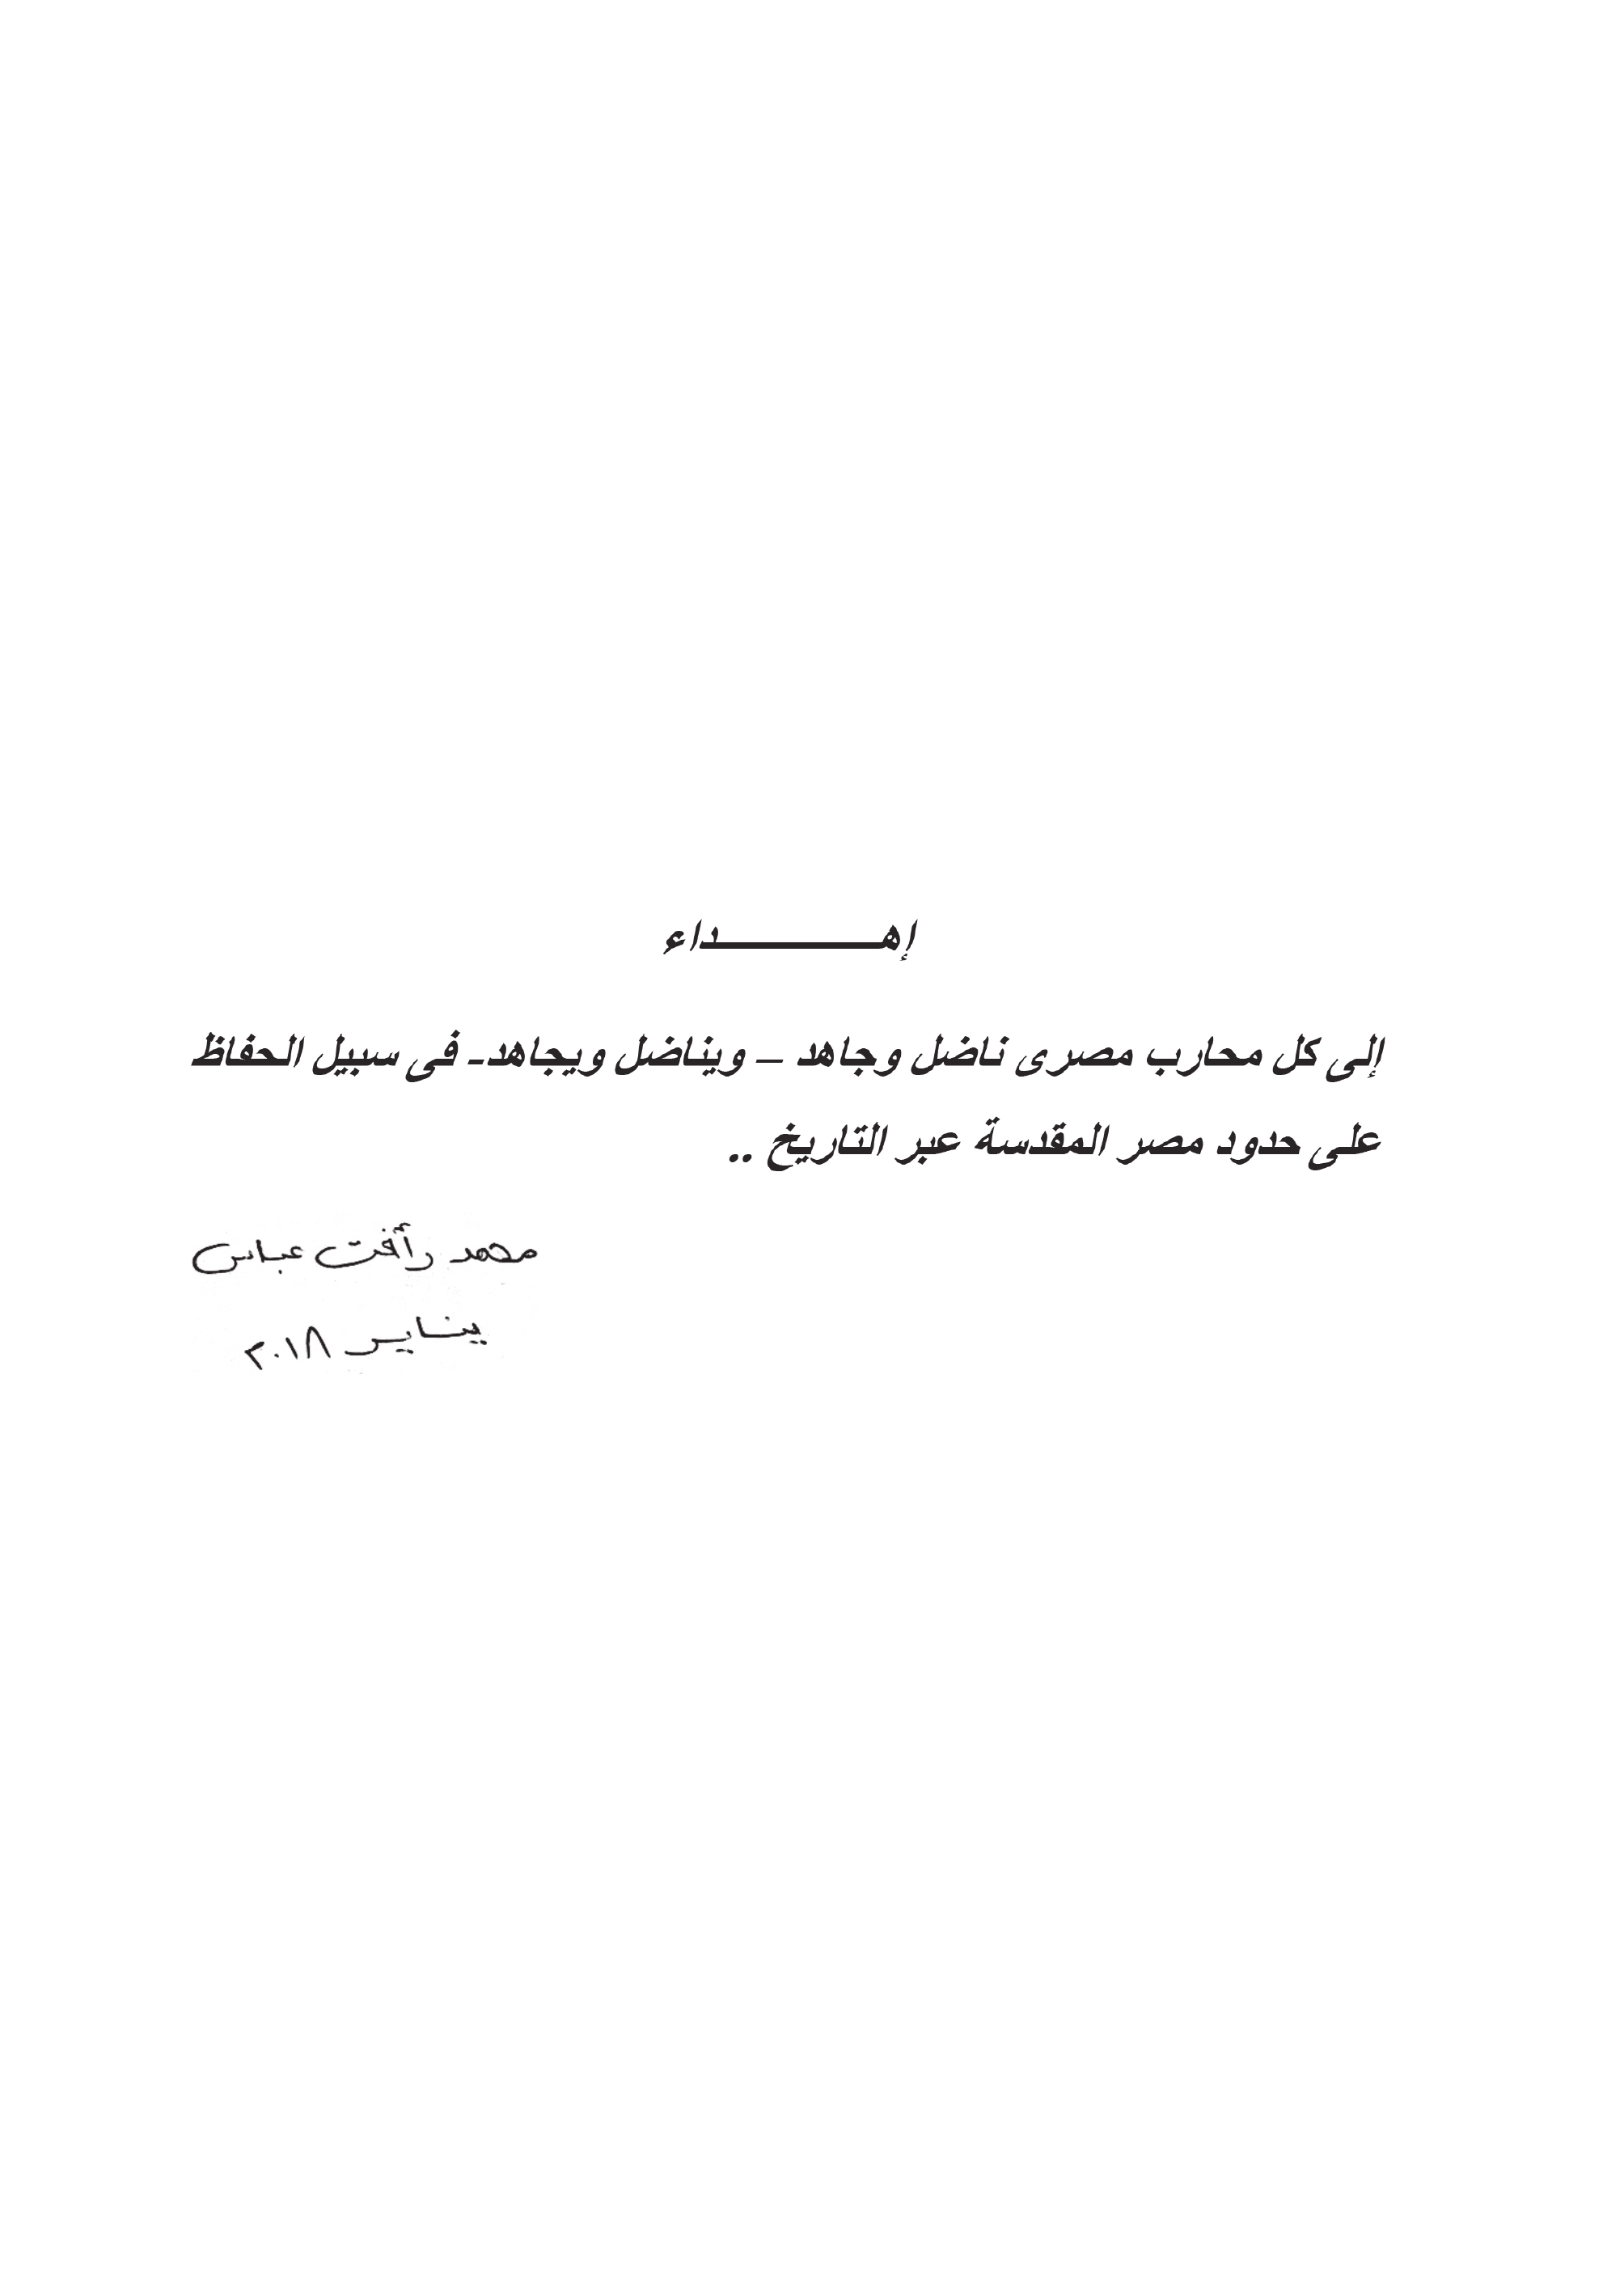 إهـــــــــــداء
إلى كل محارب مصرى ناضل وجاهد – ويناضل ويجاهد- فى سبيل الحفاظ
على حدود مصر المقدسة عبر التاريخ ..
محمد رأفت عباس
يناير ٢٠١٨